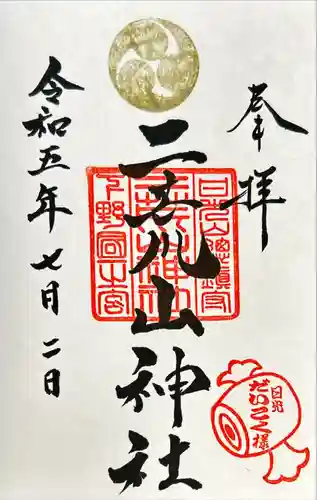 奉拝
二荒山神社
日光山總鎮守
下野國一宮
令和五年七月二日
日光
だいこく様